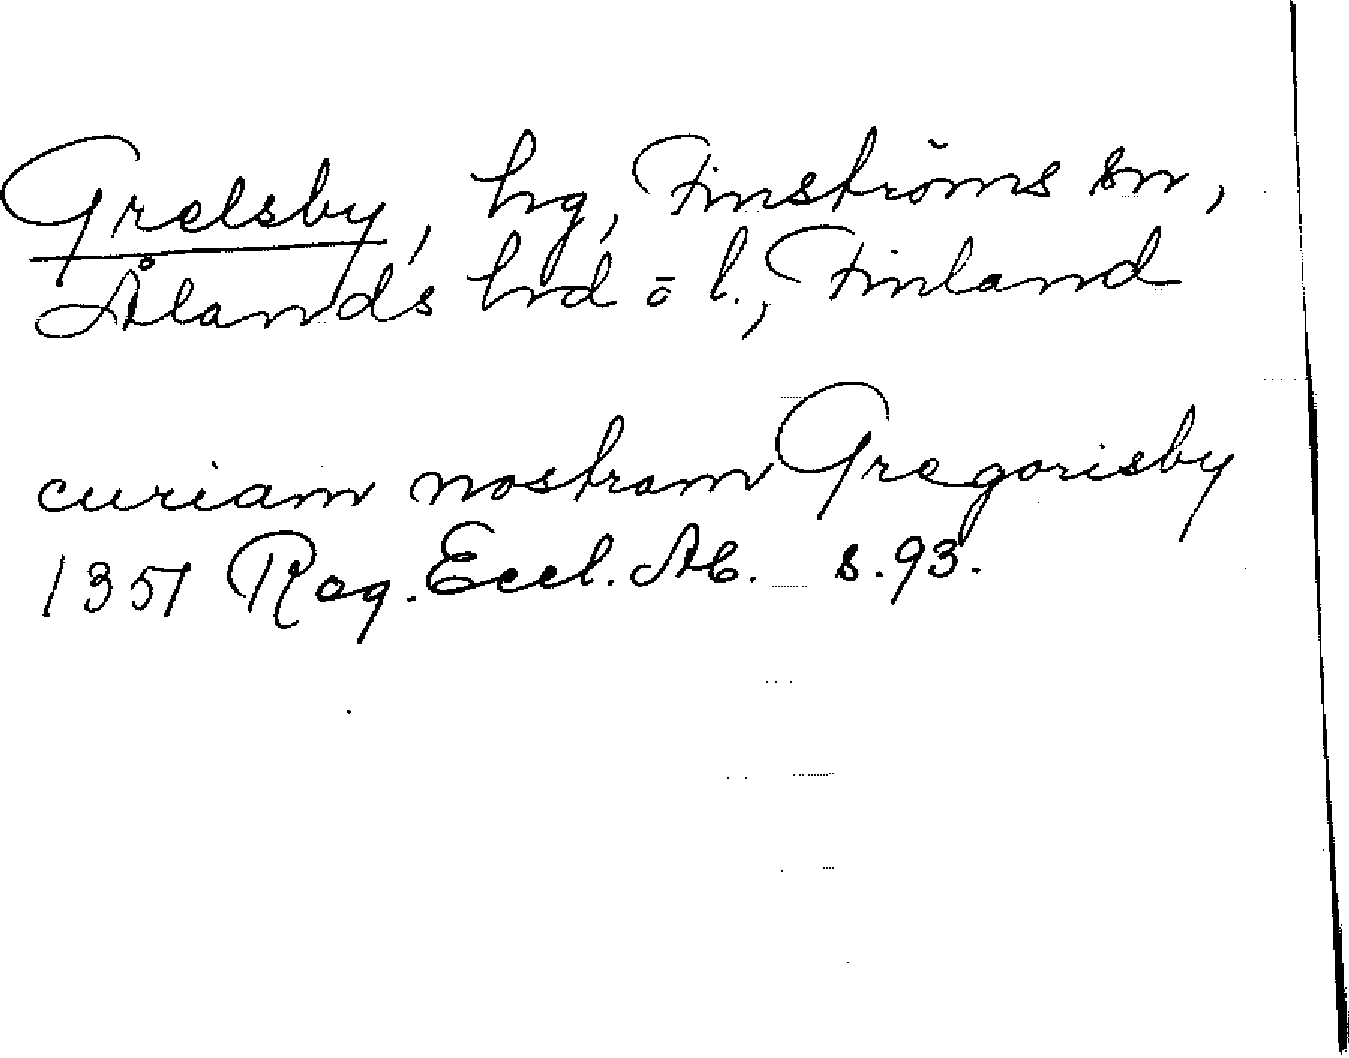 Grelsby, hg, Finströms sn,
Ålands hrd o l., Finland
curiam nostram Gregorisby
1357 Reg. Eccl. Ab. s. 93.